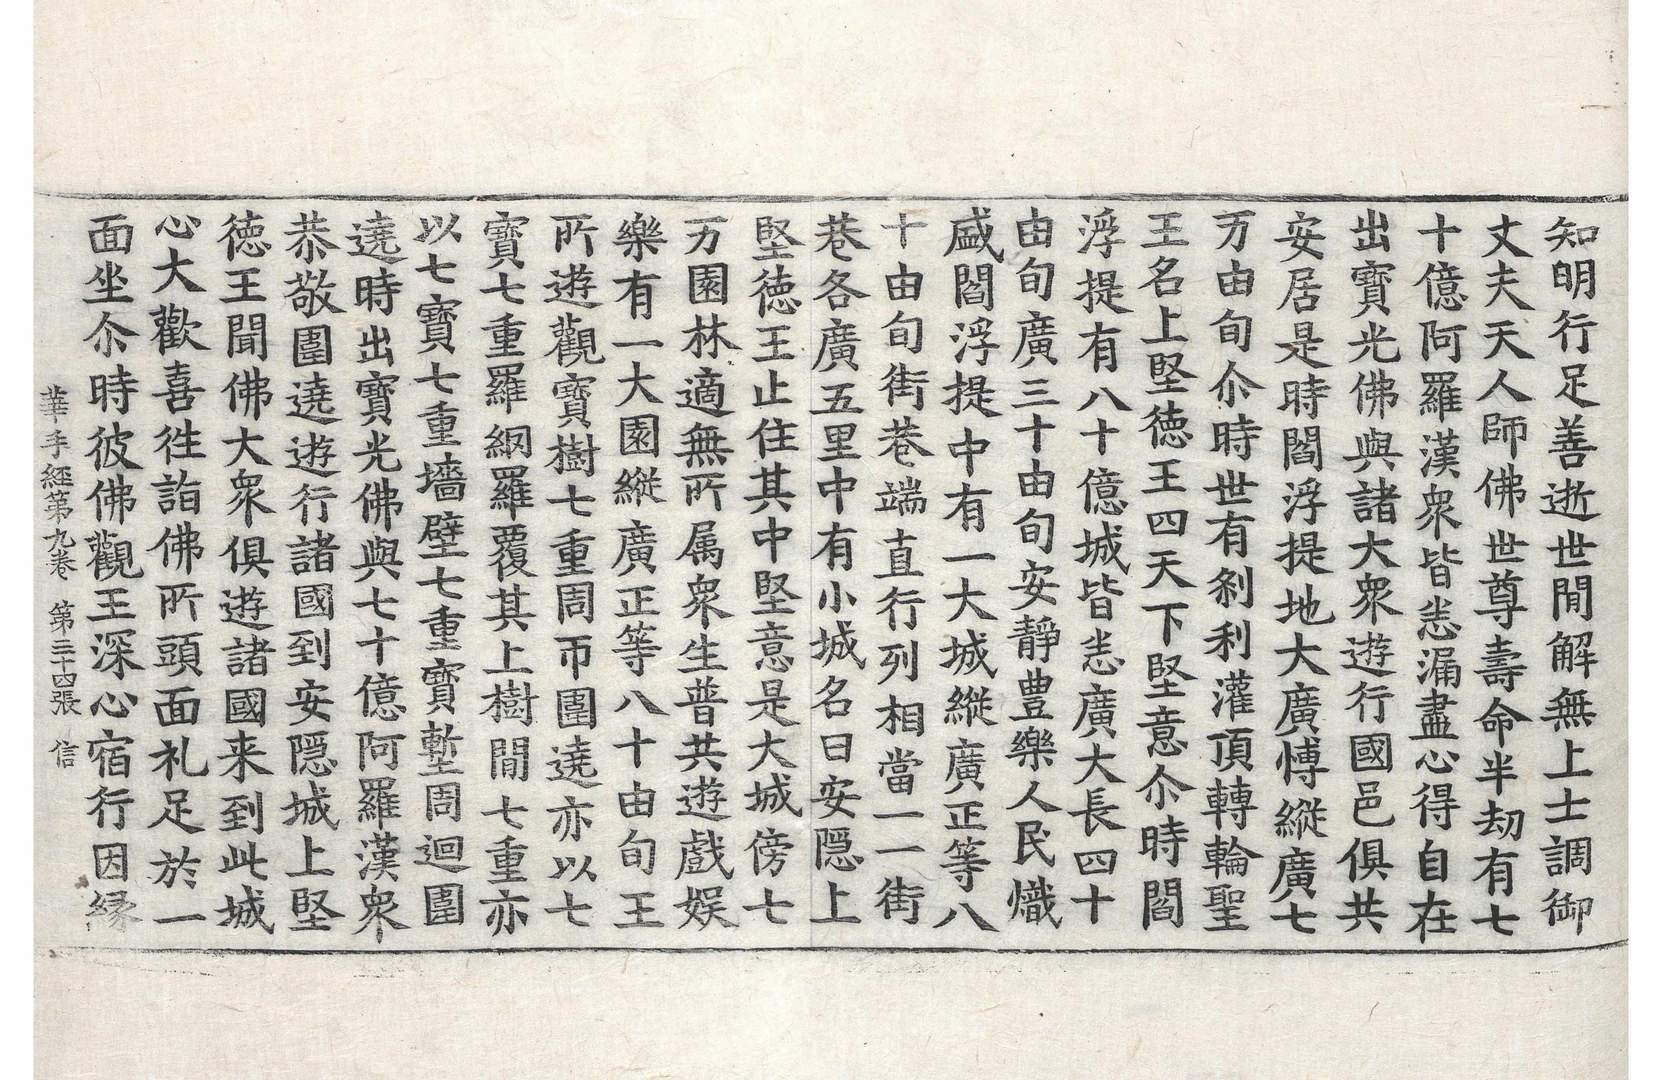 知明行足善逝世間解無上士調御
丈夫天人師佛世尊壽命半劫有七
十億阿羅漢衆皆悉漏盡心得自在
出寳光佛與諸大衆遊行國邑俱共
安居是時閻浮提地大廣愽縱廣七
万由旬尒時世有刹利灌頂轉輪聖
王名上堅徳王四天下堅意尒時閻
浮提有八十億城皆悉廣大長四十
由旬廣三十由旬安靜豊樂人民熾
盛閻浮提中有一大城縱廣正等八
十由旬街巷端直行列相當一一街
巷各廣五里中有小城名曰安隠上
堅徳王止住其中堅意是大城傍七
万園林適無所属衆生普共遊戲娱
樂有一大園縱廣正等八十由旬王
所遊觀寳樹七重周帀圍遶亦以七
寳七重羅網羅覆其上樹間七重亦
以七寳七重墻壁七重寳塹周迴圍
遶時出寳光佛與七十億阿羅漢衆
恭敬圍遶遊行諸國到安隠城上堅
徳王聞佛大衆俱遊諸國来到此城
心大歡喜徃詣佛所頭面礼足於一
面坐尒時彼佛觀王深心宿行因縁
華手経第九巻 第三十四張 信